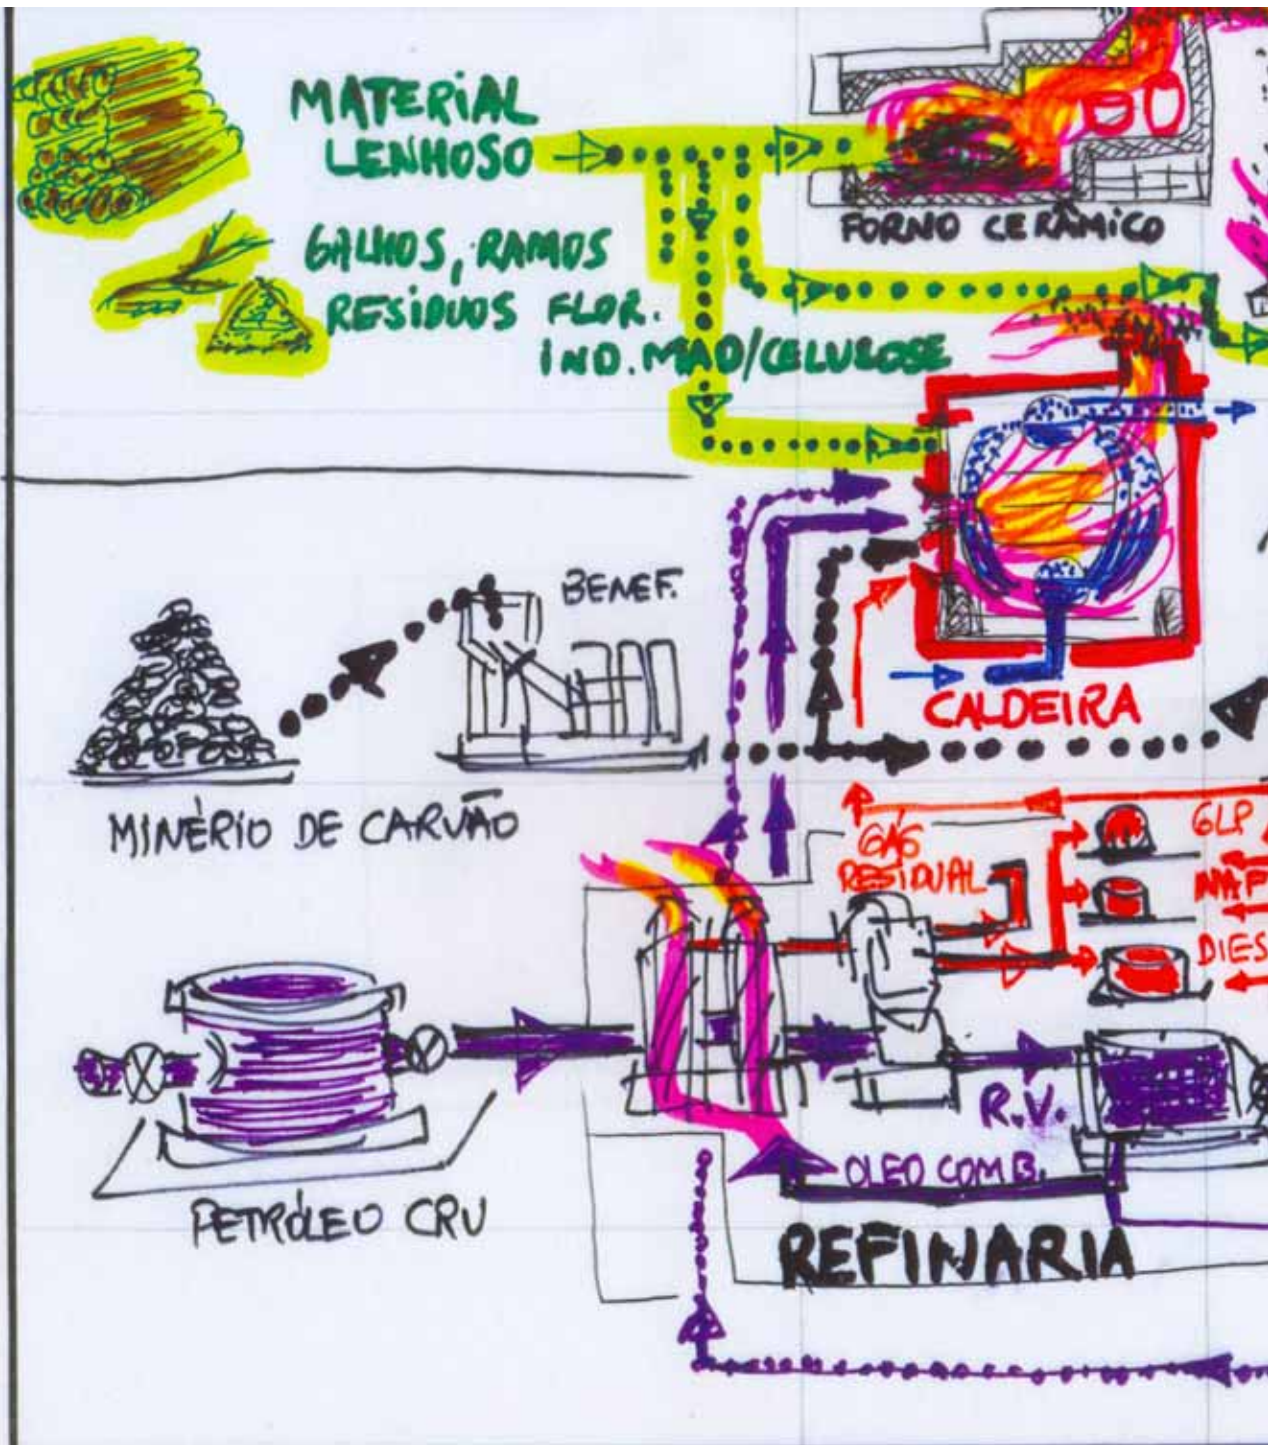 MATERIAL
LENHOSO
FORNO CERÂMICO
GALHOS, RAMOS
RESIDUOS FLOR.
IND. MAD/CELULOSE
BENEF.
CALDEIRA
MINÉRIO DE CARVÃO
GÁS
RESIDUAL
GLP
NAF
DIES
R.V.
OLEO COMB.
PETRÓLEO CRU
REFINARIA